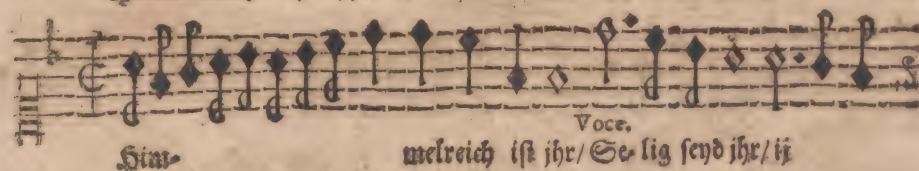 Voce.
Him- melreich ist jhr/ Se- lig seyd jhr/ ij